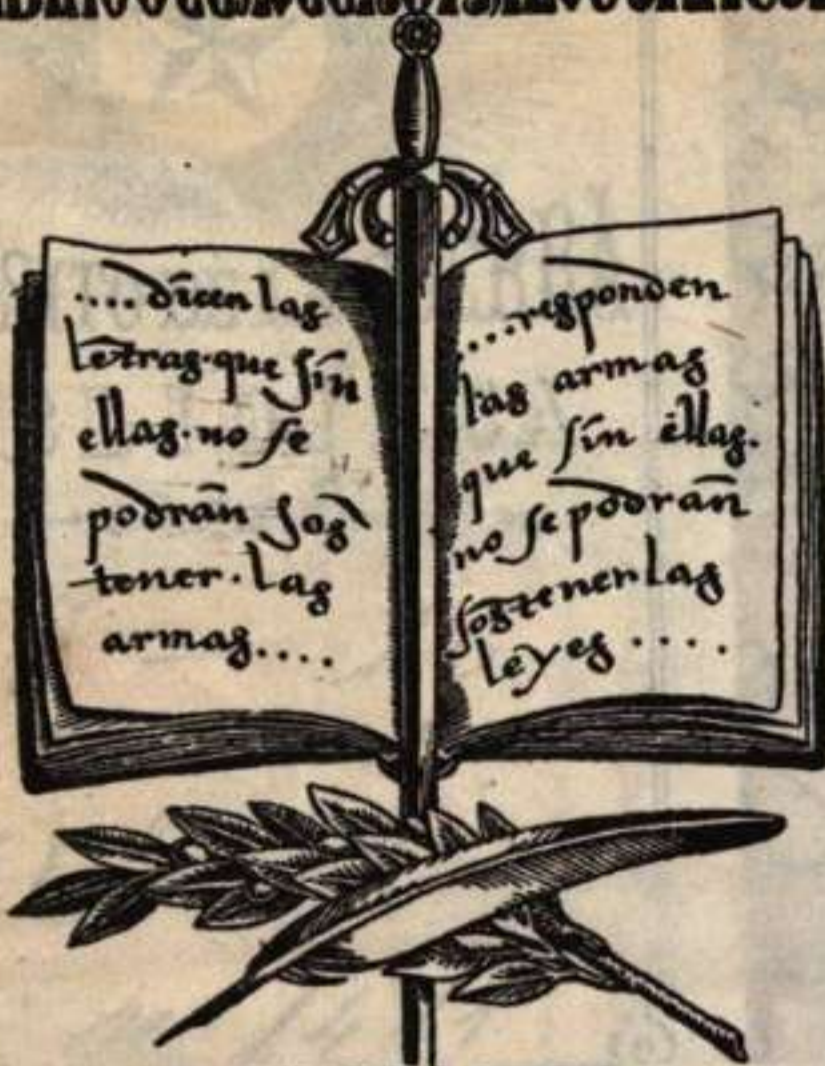 ....dicen las
letras·que sin
ellas·no se
podrān sos
tener·las
armas....
....responden
las armas
que sin ellas.
no se podrān
sostener las
leyes ....